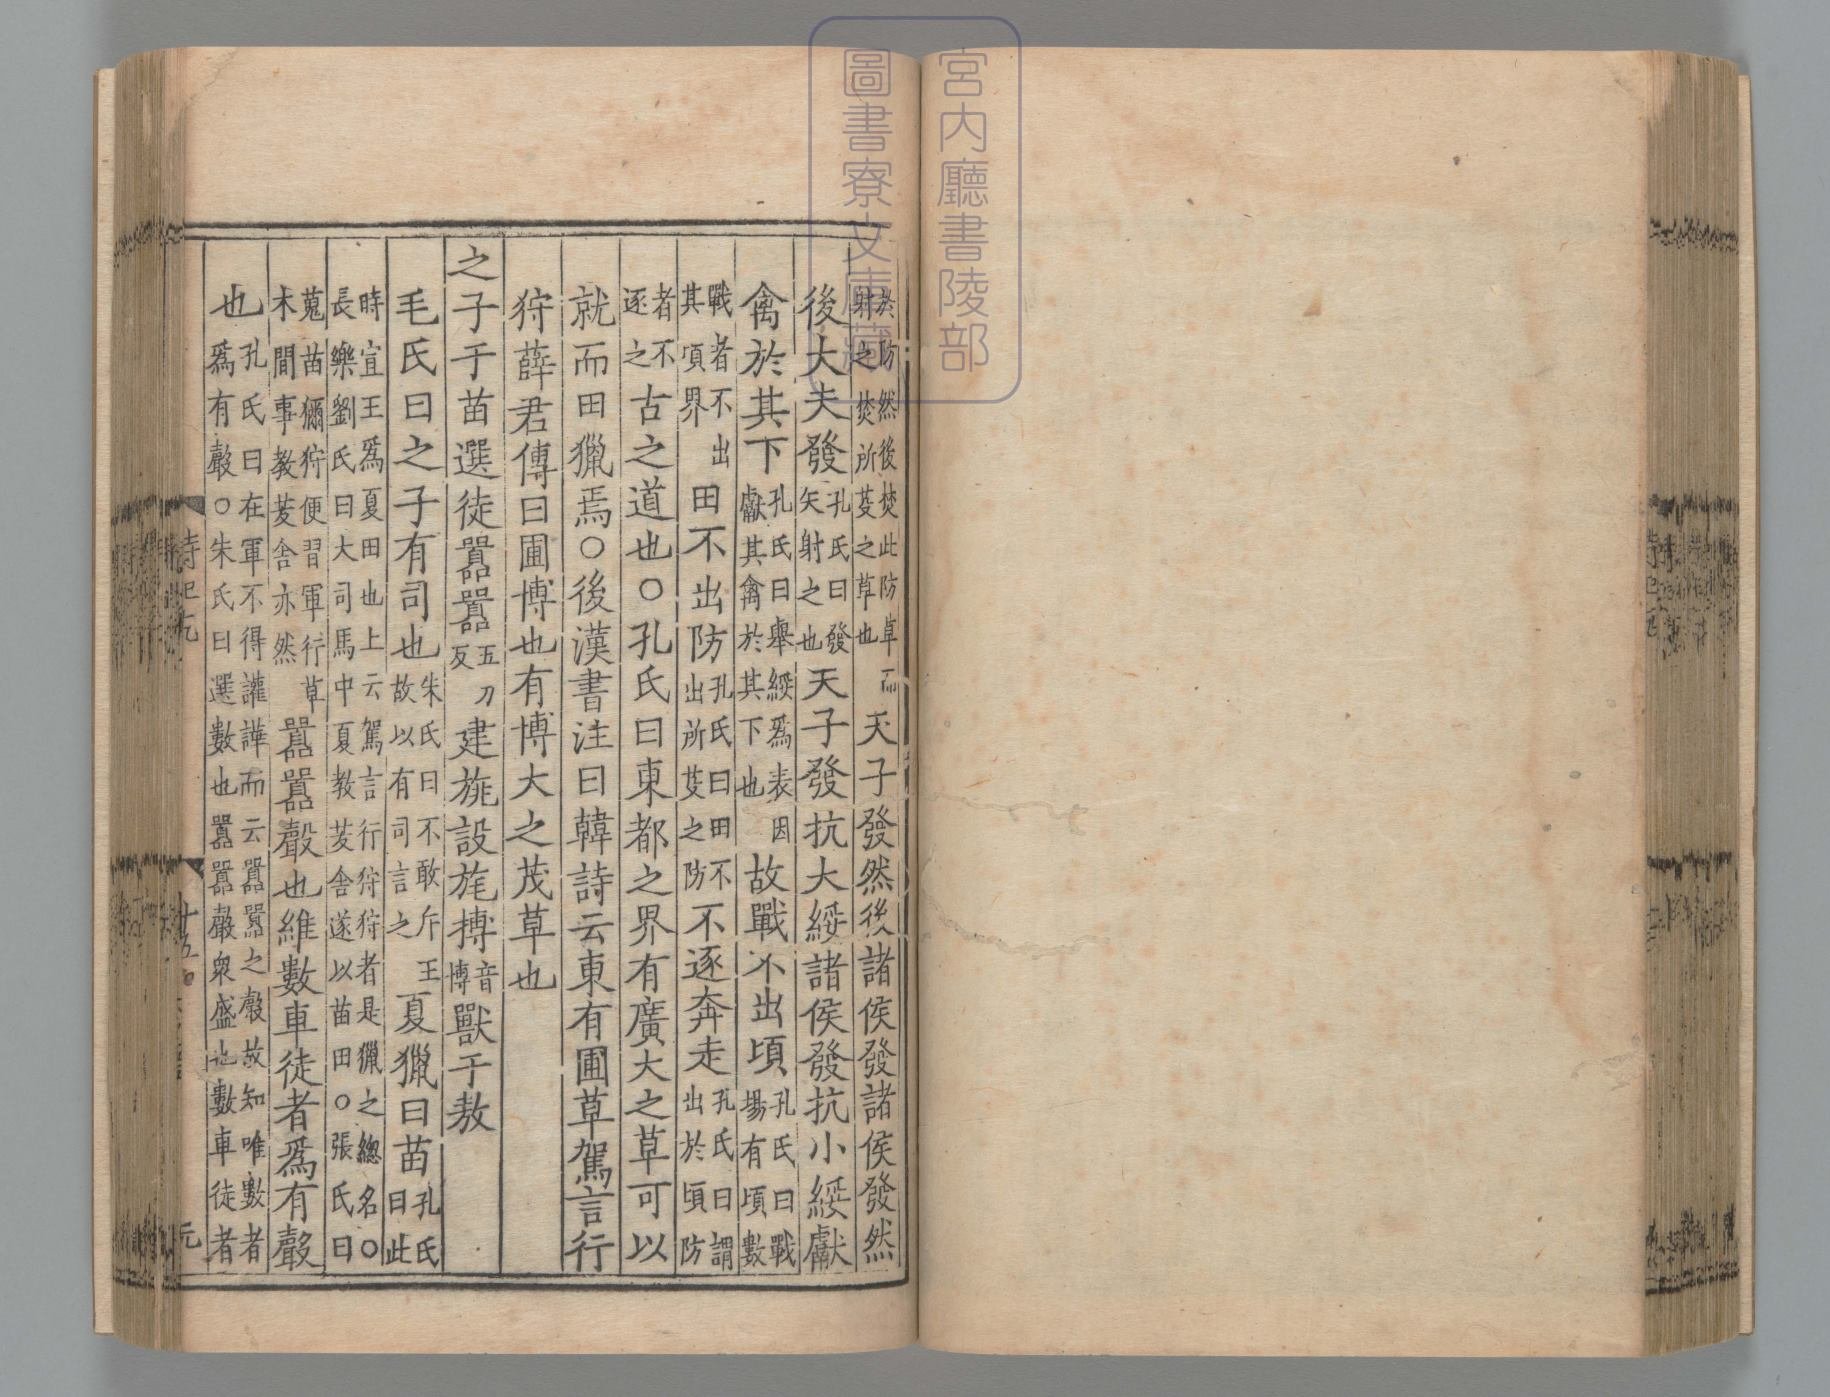 宮内廳書陵部
圖書寮文庫藏
於防然後焚此防草而
射之焚所芟之草也
天子發然後諸侯發諸侯發然
後大夫發孔氏曰發
矢射之也天子發抗大綏諸侯發抗小綏獻
禽於其下孔氏曰舉綏爲表因
獻其禽於其下也故戰不出頃孔氏曰戰
場有頃數
戰者不出
其頃界田不出防孔氏曰田不
出所芟之防不逐奔走孔氏曰謂
出於頃防
者不
逐之古之道也○孔氏曰東都之界有廣大之草可以
就而田獵焉○後漢書注曰韓詩云東有圃草駕言行
狩薛君傳曰圃博也有博大之茂草也
之子于苗選徒囂囂五刀
反建旐設旄搏音
博獸于敖
毛氏曰之子有司也朱氏曰不敢斥王
故以有司言之夏獵曰苗孔氏
曰此
時宣王爲夏田也上云駕言行狩狩者是獵之總名○
長樂劉氏曰大司馬中夏教茇舍遂以苗田○張氏曰
蒐苗獮狩便習軍行草
木間事教茇舍亦然囂囂聲也維數車徒者爲有聲
也孔氏曰在軍不得讙譁而云囂囂之聲故知唯數者
爲有聲○朱氏曰選數也囂囂聲衆盛也數車徒者
詩記九
十五
元